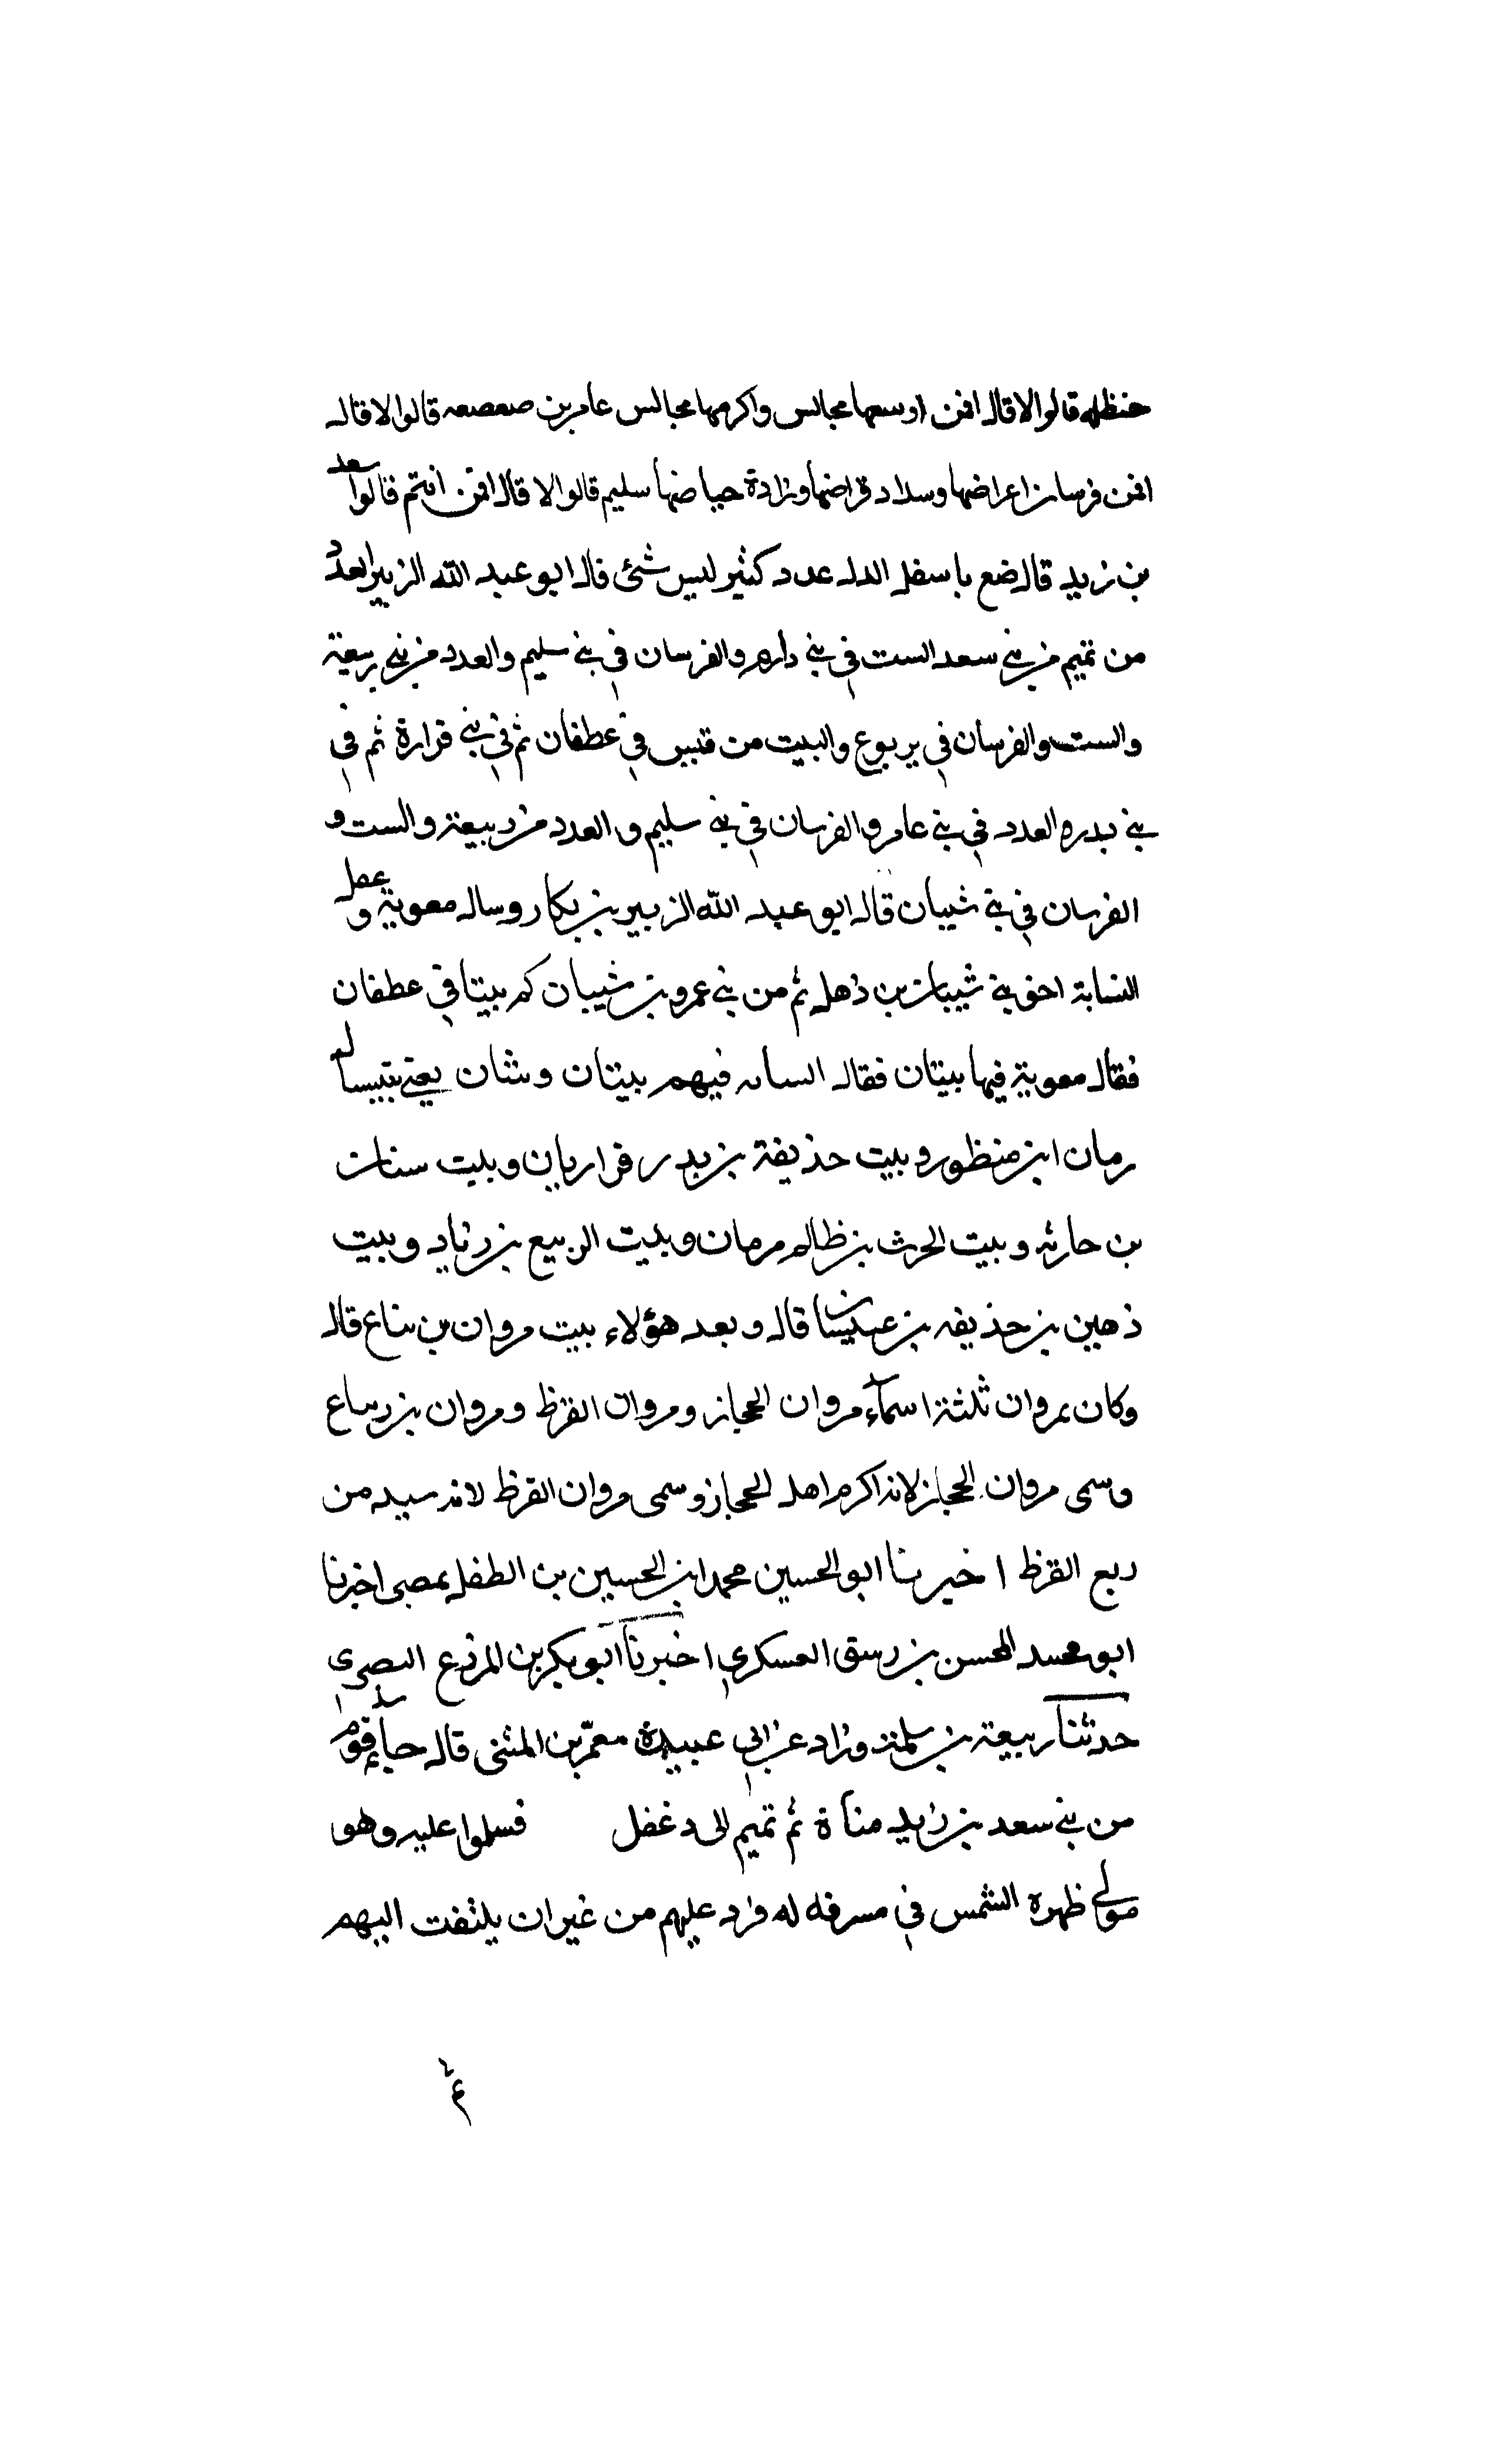 حنظله قالوا لا قال افمن اوسعها مجالس واكرمها مجالس عامر بن صعصعه قالوا لا قال
افمن فرسان اعراضها وسداد قراضها وزادة حياضها سليم قالوا لا قال افمن انتم قالوا سعد
بن زيد قال ضع باسفل الدله عدد كثير ليس شئ قال ابو عبد الله الزبير العدد
من تميم من بني سعد الست في بني دارم والفرسان في بني سليم والعدد من بني ربيعة
والست والفرسان في يربوع والبيت من قيس في عطفان ثم في بني فزارة ثم في
بني بدره العدد في بني عامر والفرسان في بني سليم والعدد من ربيعة والست و
الفرسان في بني شيبان قال ابو عبد الله الزبير بن بكار وسال معوية و عفل
النسابة احق بني شيبان بن ذهل ثم من بني عمرو بن شيبان كم بيتا في عطفان
فقال معوية فيها بيتان فقال السابه فيهم بيتان وبيتان يعني
رمان ابن منظور وبيت حذيفة بن بدر فزاريان وبيت سنان
بن حارثه وبيت الحرث بن ظالم مرمان وبيت الربيع بن زياد وبيت
ذهين بن حذيفه بن قال وبعد هؤلاء بيت مروان بن قال
وكان بمروان ثلثة اسماء مروان الحجاز ومروان القرظ ومروان بن رساع
وسمى مروان الحجاز لانه اكرم اهل الحجاز وسمى مروان القرظ لانه سيد من
ربع القرظ اخبرنا ابو الحسين محمد ابن الحسين بن الطفل بمصر اخبرنا
ابو محمد الحسن بن رسق العسكري اخبرنا ابو بكر بن المزرع البصري
حدثنا ربيعة بن سلمة وزاد عن ابي عبيدة معمر بن المثنى قال جاء قوم
من بني سعد بن زيد مناة ثم تميم الى دغفل فسلموا عليه وهو
مولي ظهره الشمس في مسرفه له فرد عليهم من غير ان يلتفت اليهم